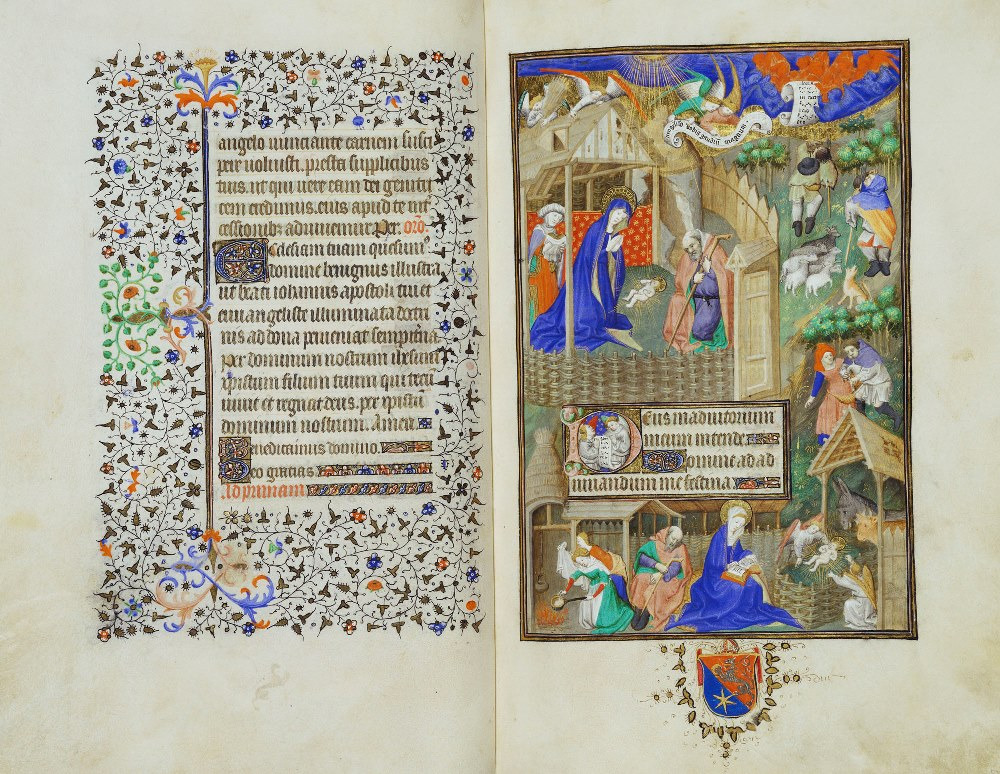 angelo nunciante carnem susci
pere voluisti. presta supplicibus
tuis. ut qui vere eam dei genitri
cem credimus. eius apud te int
cessionibus adiuvemur. Per. oro.
Ecclesiam tuam quesumus
domine benignus illustra
ut beati iohannis apostoli tui et
euuangeliste illuminata doctri
nis ad dona perveniat sempitna
Per dominum nostrum ihesum
xpistum filium tuum qui tecu
vivit et regnat deus. per xpistu
dominum nostrum. Amen.
Benedicamus domino.
Deo gracias.
Ad primam
vobis gaudium magnum
Deus in adiutorium
meum intende
Domine ad ad
iuvandum me festina